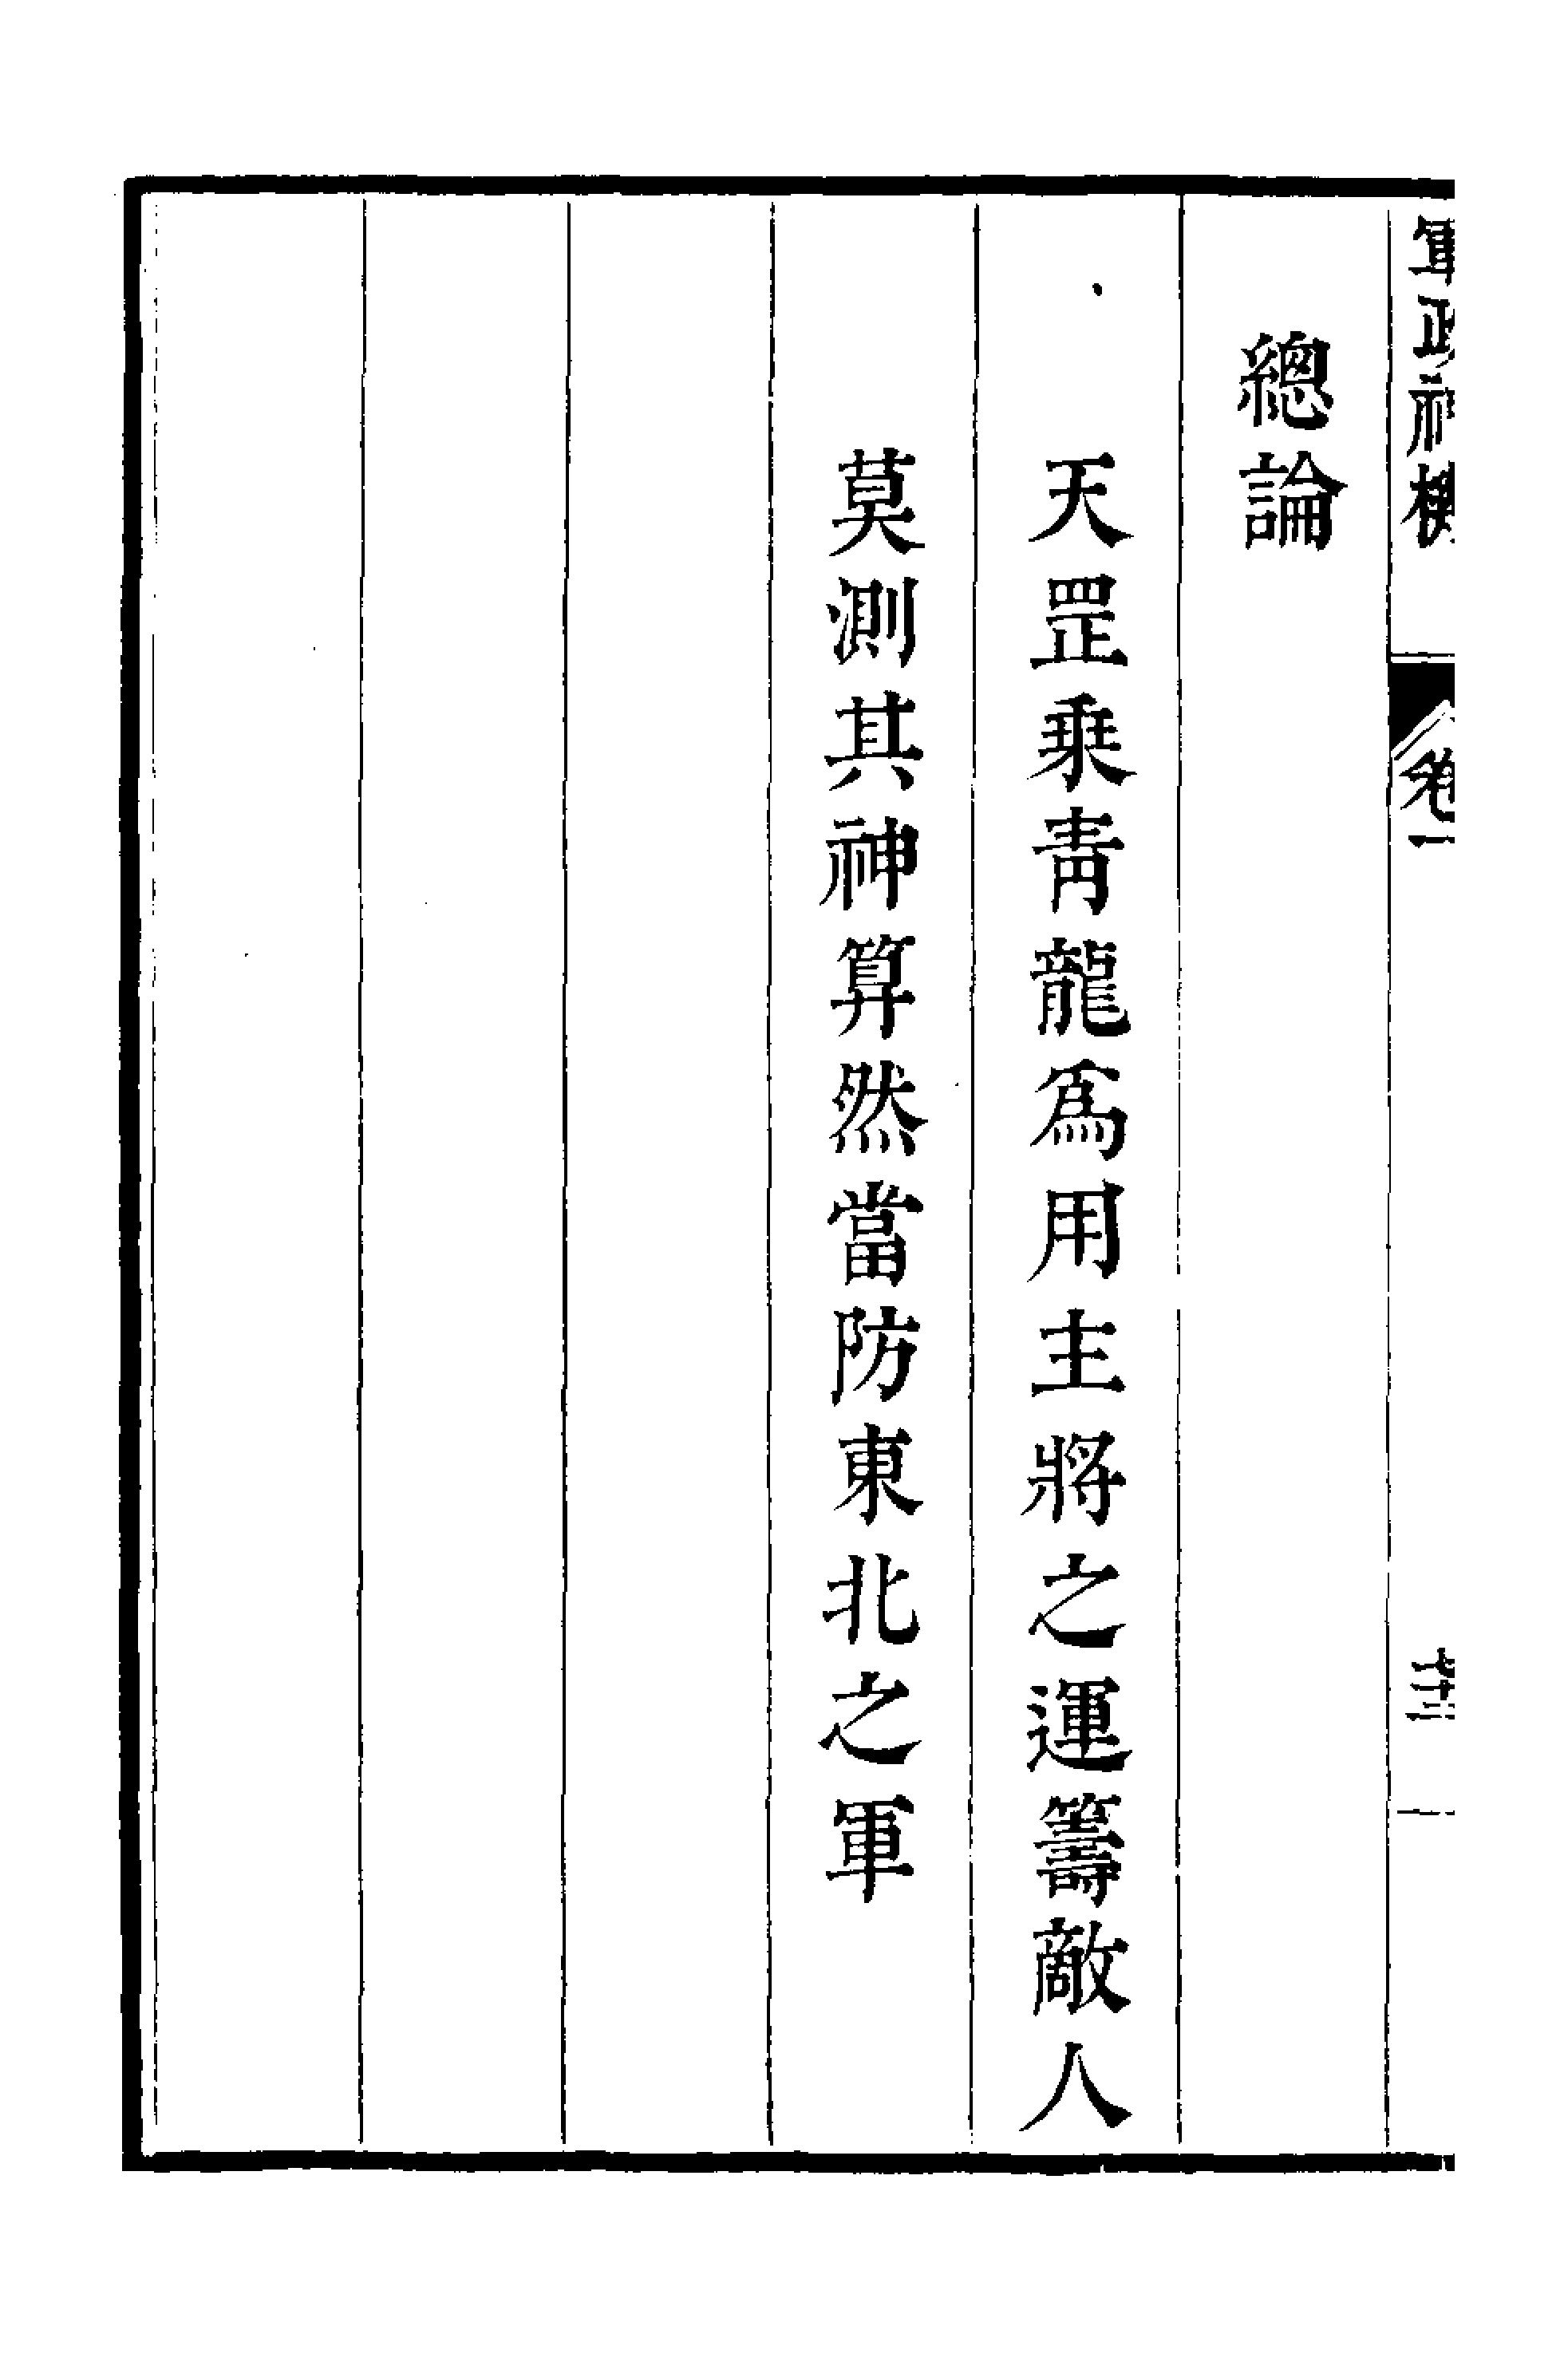 軍政神機
卷一
總論
天罡乘青龍爲用主將之運籌敵人
莫測其神算然當防東北之軍